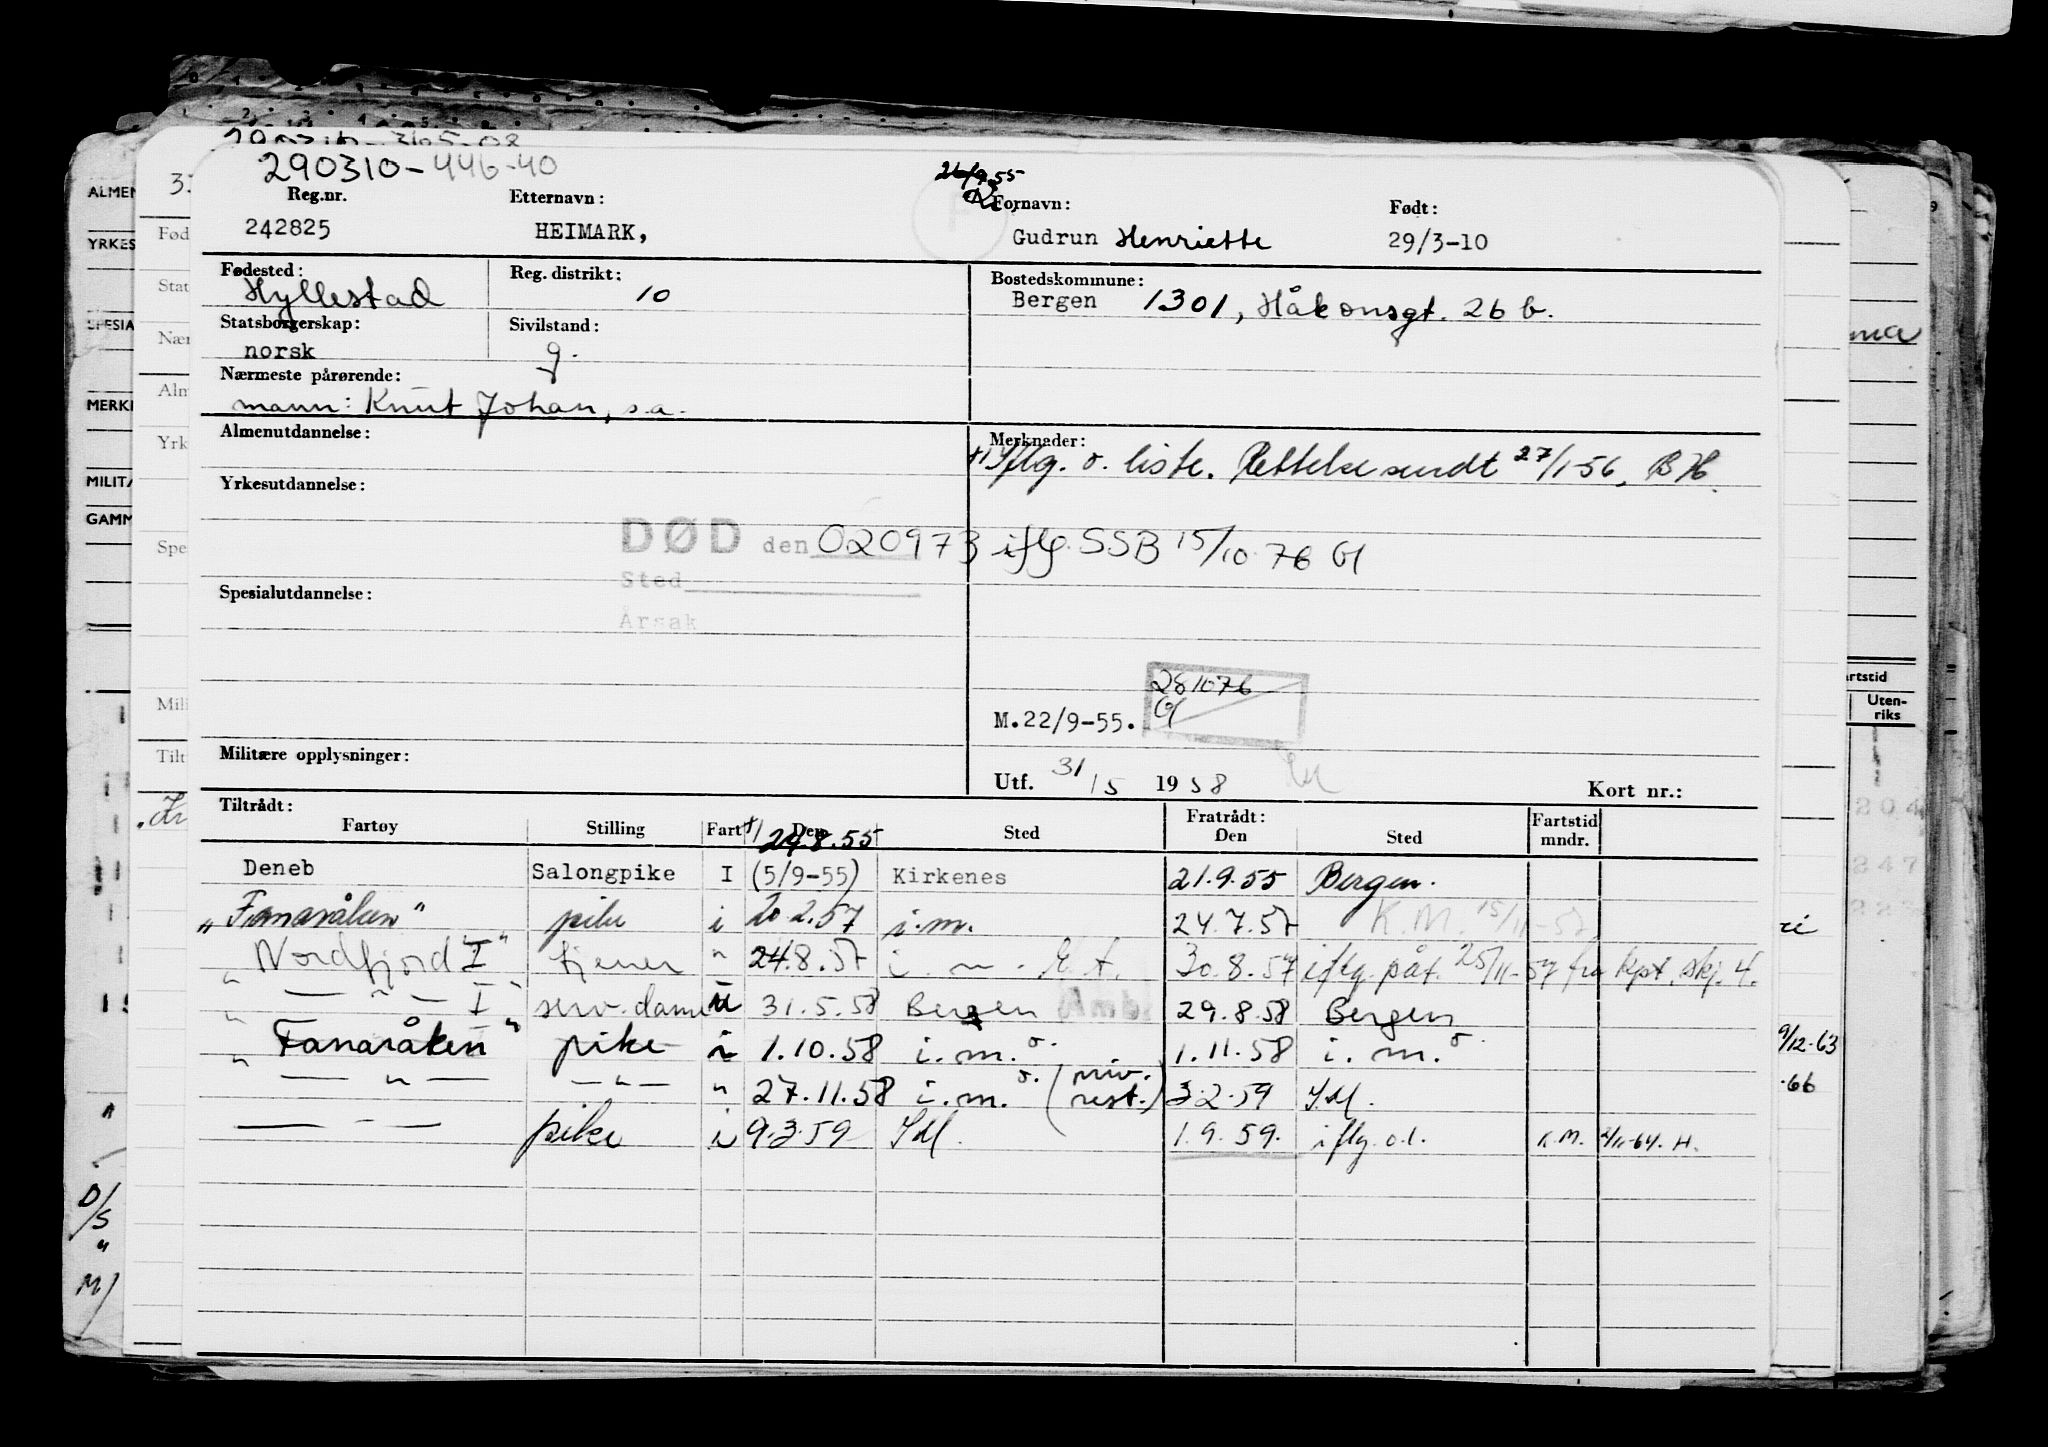 290310-446-40
26/9 55
Reg.nr. Etternavn: Fornavn: Født:
242825 HEIMARK, Gudrun Henriette 29/3-10
Fødested: Reg. distrikt: Bostedskommune:
Hyllestad 10 Bergen 1301, Håkonsgt. 26 b.
Statsborgerskap: Sivilstand:
norsk g.
Nærmeste pårørende:
mann: Knut Johan, s.a.
Almenutdannelse: Merknader:
+) iflg. o. liste. Rettelse sendt 27/1-56, BH.
Yrkesutdannelse:
DØD den 020973 iflg. SSB 15/10 76 Gl
Sted
Spesialutdannelse:
Årsak
281076
Gl
M.22/9-55.
Militære opplysninger:
Utf. 31/5 1958 Kort nr.:
Tiltrådt: Fratrådt: Fartstid
Fartøy Stilling Fart Den Sted Den Sted mndr.
+) 29.8.55
Deneb Salongpike I (5/9-55) Kirkenes 21.9.55 Bergen.
"Fanaråken" pike i 20.2.57 i.m. 24.7.57 K.M. 15/11-57
"Nordfjord I" tjener " 24.8.57 i.m. E.t. 30.8.57 iflg. påt. 25/11-57 fra kpt. skj. 4.
" — " — I" serv.dame u 31.5.58 Bergen Amb 29.8.58 Bergen
"Fanaråken" pike i 1.10.58 i.m.o. 1.11.58 i.m.o
" — " — — " — " 27.11.58 i.m.o. (niv. rest.) 3.2.59 I.M.
— " — pike i 9.3.59 I.M. 1.9.59. iflg. o.l. K.M. 2/11-64. H.